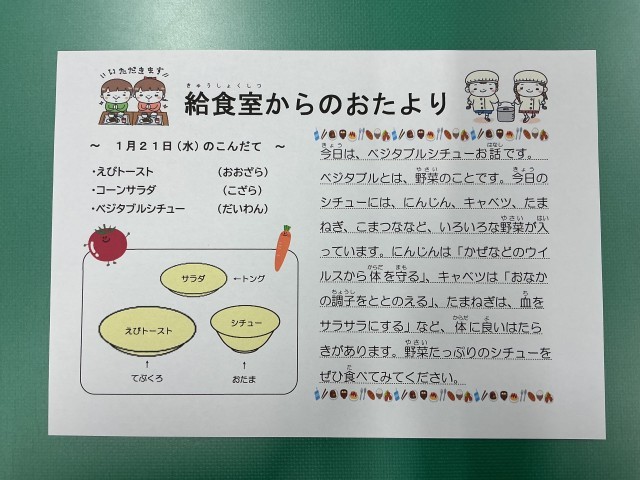 いただきます
給食室からのおたより
～ 1月21日(水)のこんだて ～
・えびトースト (おおざら)
・コーンサラダ (こざら)
・ベジタブルシチュー (だいわん)
サラダ ←トング
えびトースト シチュー
↑ ↑
てぶくろ おたま
今日は、ベジタブルシチューお話です。
ベジタブルとは、野菜のことです。今日の
シチューには、にんじん、キャベツ、たま
ねぎ、こまつななど、いろいろな野菜が入
っています。にんじんは「かぜなどのウイ
ルスから体を守る」、キャベツは「おなか
の調子をととのえる」、たまねぎは、血を
サラサラにする」など、体に良いはたら
きがあります。野菜たっぷりのシチューを
ぜひ食べてみてください。